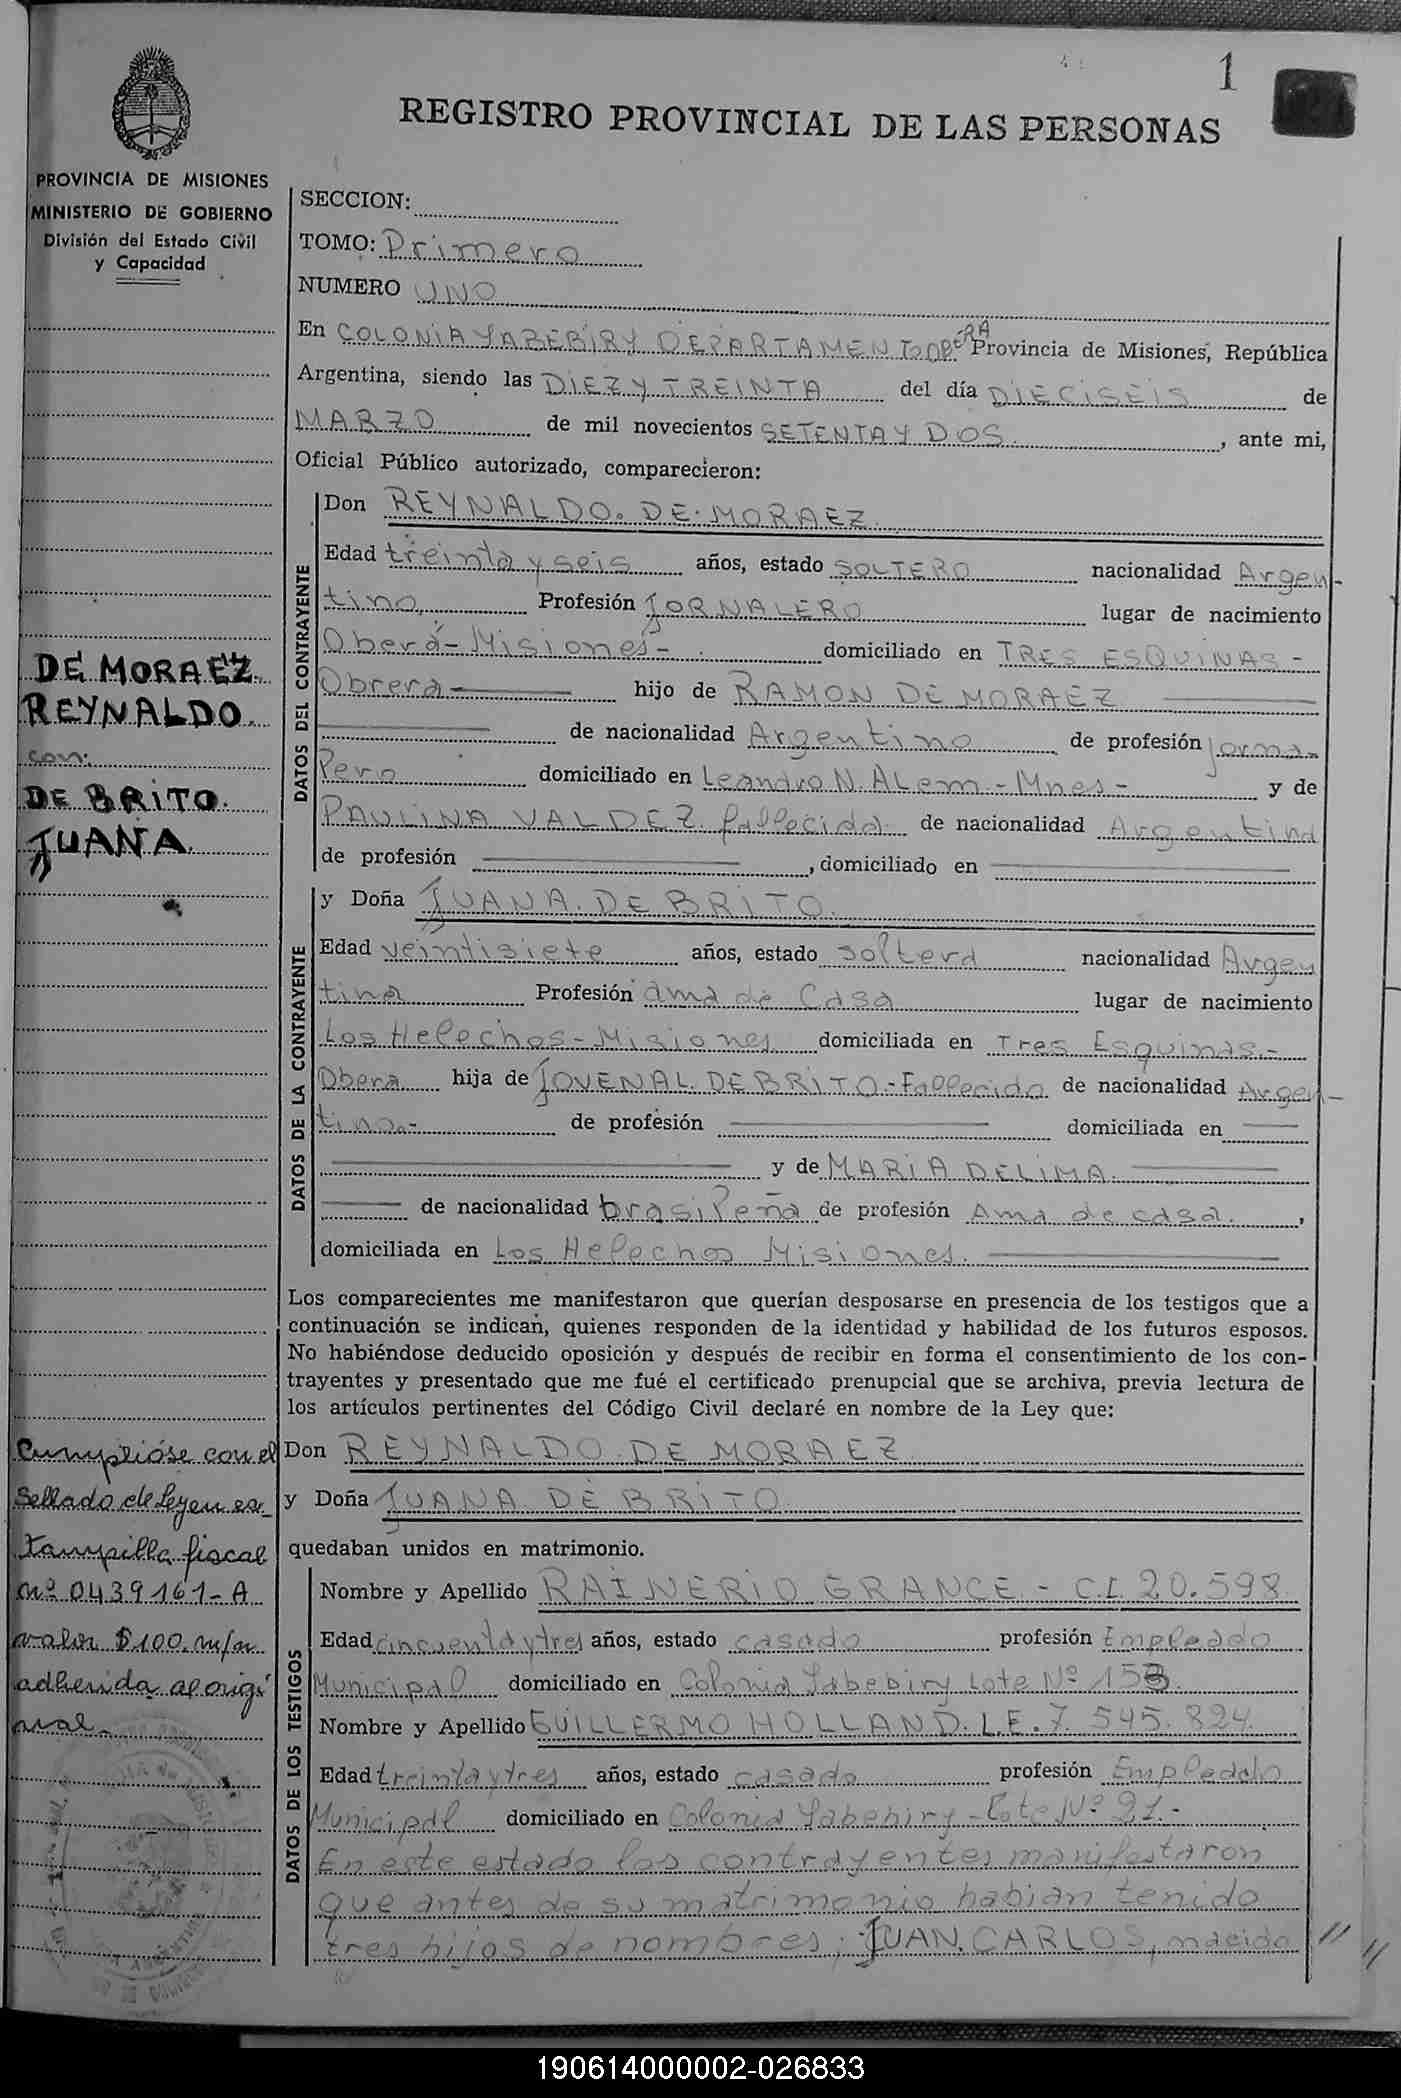 1
REGISTRO PROVINCIAL DE LAS PERSONAS
PROVINCIA DE MISIONES
MINISTERIO DE GOBIERNO
División del Estado Civil
y Capacidad
DE MORAEZ
REYNALDO.
con:
DE BRITO.
JUANA.
Cumplióse con el
Sellado de Ley en es-
tampilla fiscal
nº 0439161-A
valor $100. m/n
adherida al origi
nal.
SECCION:
TOMO: Primero
NUMERO UNO
En COLONIA YABEBIRY DEPARTAMENTO OBERA Provincia de Misiones, República
Argentina, siendo las DIEZ Y TREINTA del día DIECISEIS de
MARZO de mil novecientos SETENTA Y DOS. , ante mi,
Oficial Público autorizado, comparecieron:
DATOS DEL CONTRAYENTE
Don REYNALDO. DE. MORAEZ.
Edad treinta y seis años, estado SOLTERO nacionalidad Argen-
tino, Profesión JORNALERO lugar de nacimiento
Oberá-Misiones- domiciliado en TRES ESQUINAS-
Obrera hijo de RAMON DE MORAEZ
de nacionalidad Argentino de profesión jorna-
lero domiciliado en Leandro N. Alem - Mnes - y de
PAULINA VALDEZ fallecida de nacionalidad Argentina
de profesión , domiciliado en
DATOS DE LA CONTRAYENTE
y Doña JUANA. DE BRITO.
Edad veintisiete años, estado soltera nacionalidad Argen
tina Profesión ama de casa lugar de nacimiento
Los Helechos-Misiones domiciliada en Tres Esquinas.-
Obera hija de JOVENAL. DE BRITO.-Fallecido de nacionalidad Argen-
tino.- de profesión domiciliada en
y de MARIA DELIMA.
de nacionalidad brasileña de profesión Ama de casa. ,
domiciliada en Los Helechos Misiones.
Los comparecientes me manifestaron que querían desposarse en presencia de los testigos que a
continuación se indican, quienes responden de la identidad y habilidad de los futuros esposos.
No habiéndose deducido oposición y después de recibir en forma el consentimiento de los con-
trayentes y presentado que me fué el certificado prenupcial que se archiva, previa lectura de
los artículos pertinentes del Código Civil declaré en nombre de la Ley que:
Don REYNALDO. DE MORAEZ
y Doña JUANA DE BRITO
quedaban unidos en matrimonio.
DATOS DE LOS TESTIGOS
Nombre y Apellido RAINERIO GRANCE - C.I. 20.598
Edad cincuenta y tres años, estado casado profesión Empleado
Municipal domiciliado en Colonia Yabebiry Lote Nº 153.
Nombre y Apellido GUILLERMO HOLLAND. L.E. 7.545.824.
Edad treinta y tres años, estado casado profesión Empleado
Municipal domiciliado en Colonia Yabebiry - Lote Nº 21.-
En este estado los contrayentes manifestaron
que antes de su matrimonio habian tenido
tres hijos de nombres; JUAN. CARLOS, nacido //
190614000002-026833